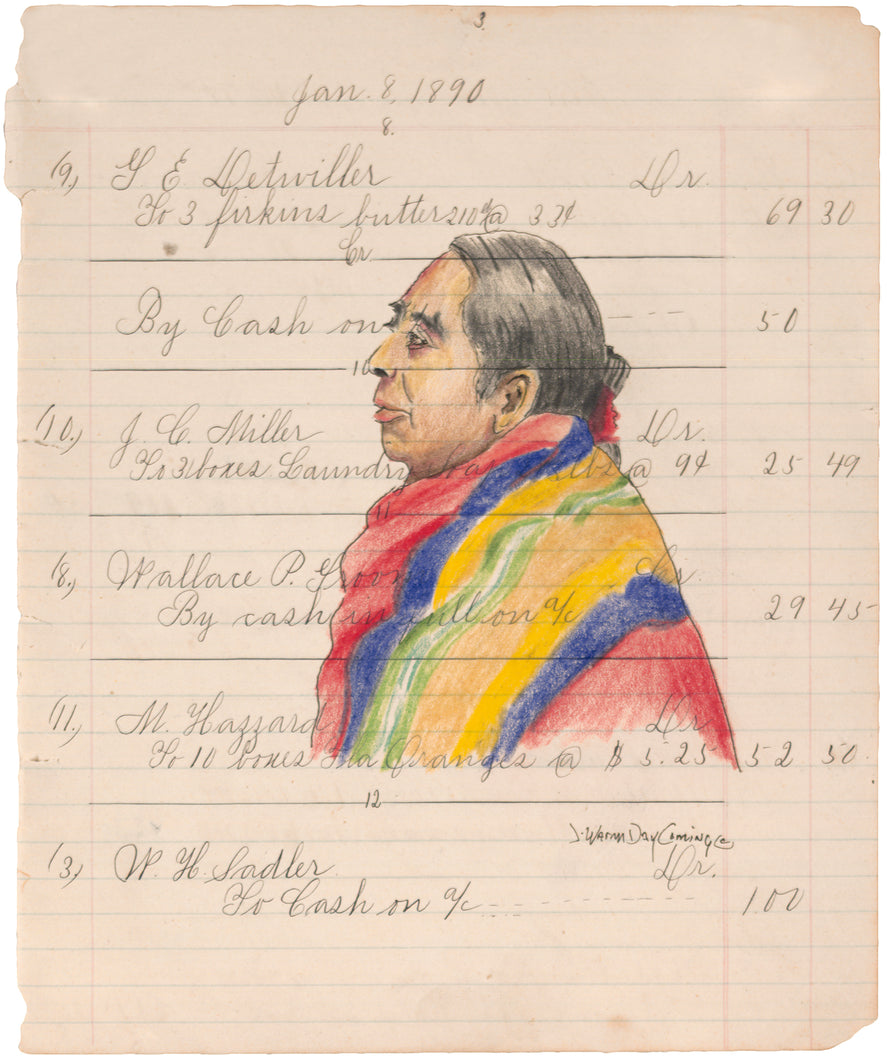 3.
Jan. 8, 1890
8.
(9,) G. E. Detwiller Dr.
To 3 firkins butter 210# @ 33¢ 69 30
Cr.
By Cash on 50
10
(10,) J. C. Miller Dr.
To 3 boxes Laundry lbs @ 9¢ 25 49
11
(8,) Wallace P. Cr.
By cash in full on a/c 29 45
(11,) M. Hazzard Dr.
To 10 boxes Oranges @ $ 5.25 52 50
12
J. Warm Day Coming ©
(3,) W. H. Sadler Dr.
To Cash on a/c 1.00